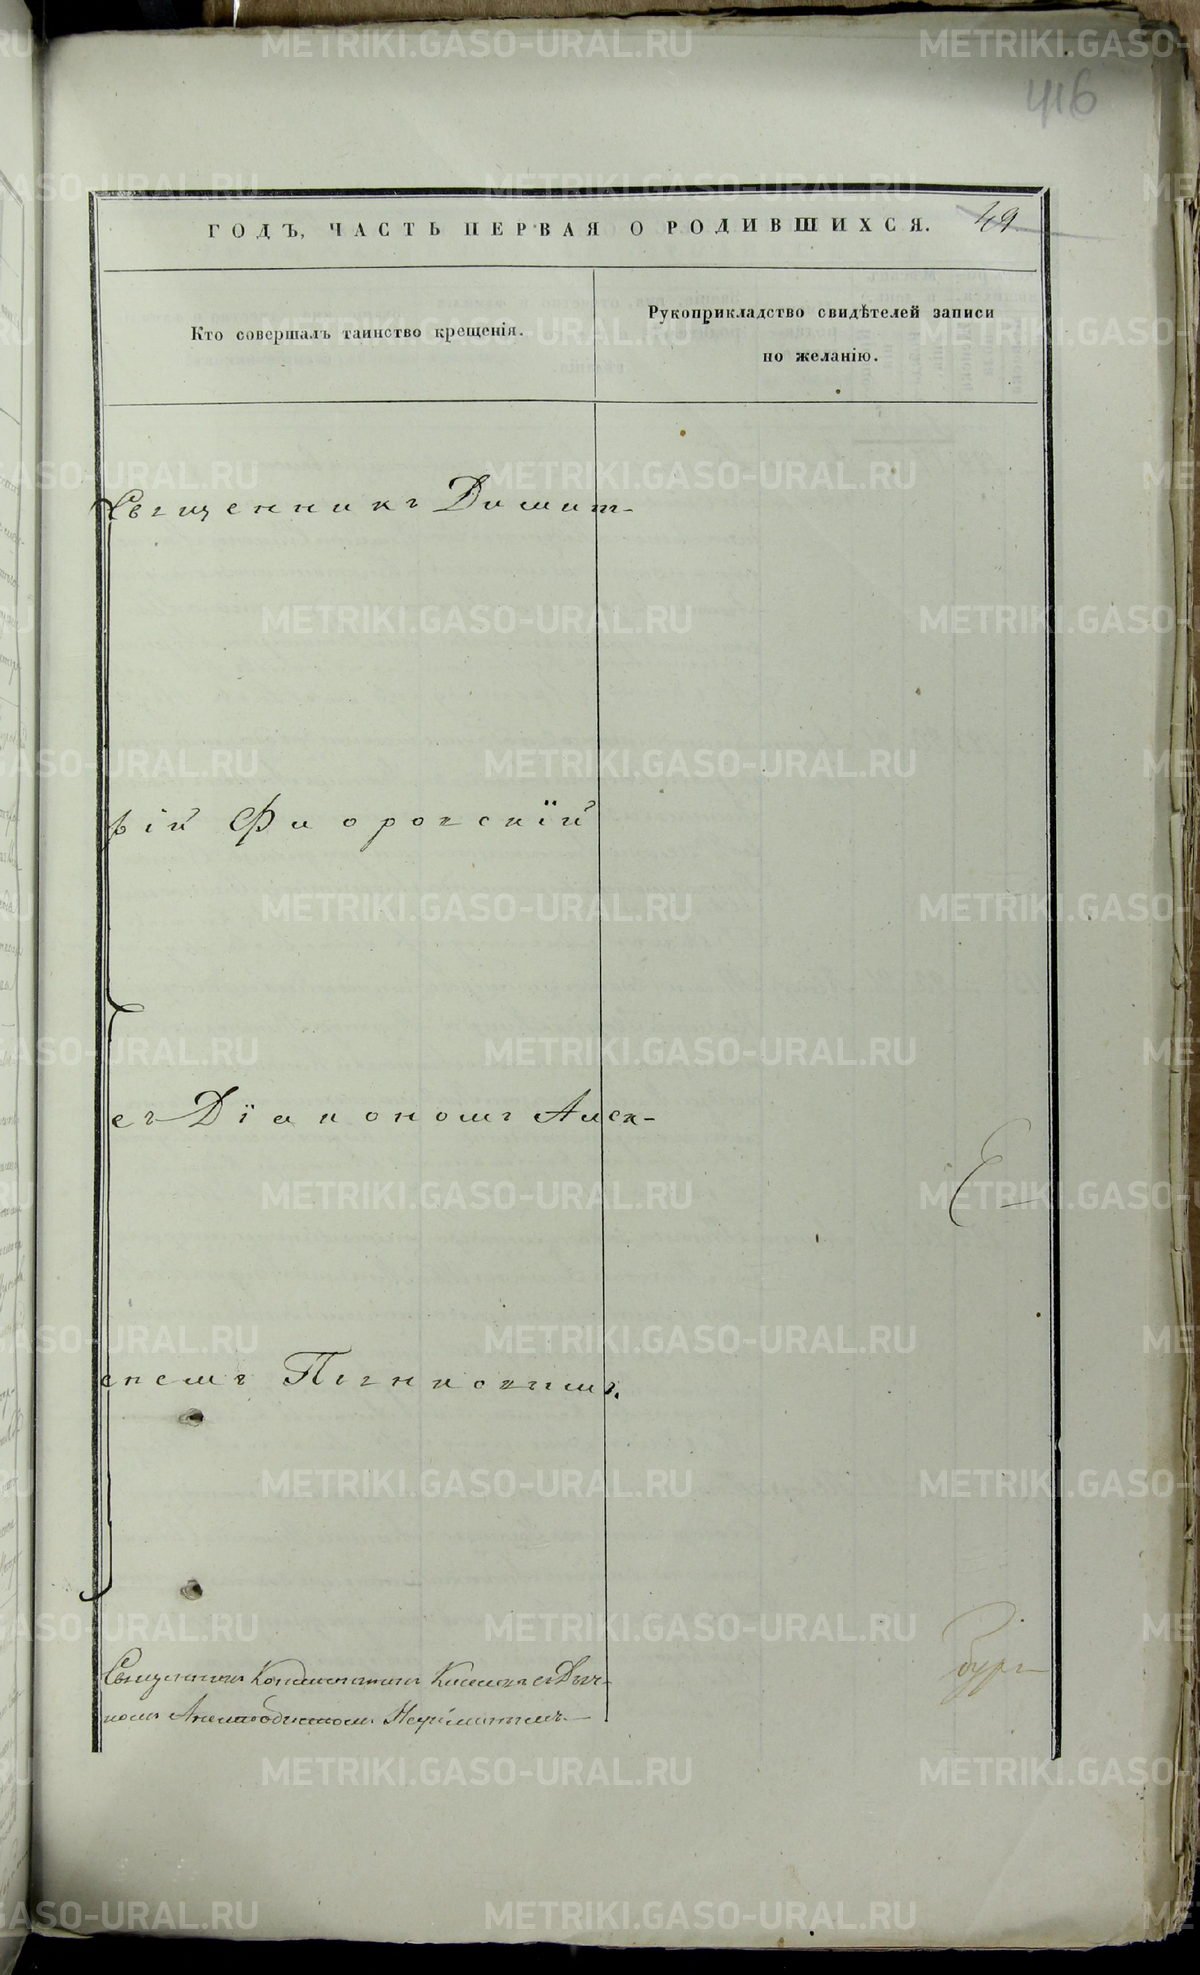 METRIKI.GASO-URAL.RU
416
ГОДЪ, ЧАСТЬ ПЕРВАЯ О РОДИВШИХСЯ. 49
Кто совершалъ таинство крещенія.
Рукоприкладство свидѣтелей записи
по желанію.
Священникъ Димит-
рій Флоровскій
съ Діакономъ Алек-
сѣемъ
Е-
Священникъ Константинъ съ Діако-
номъ
бург-